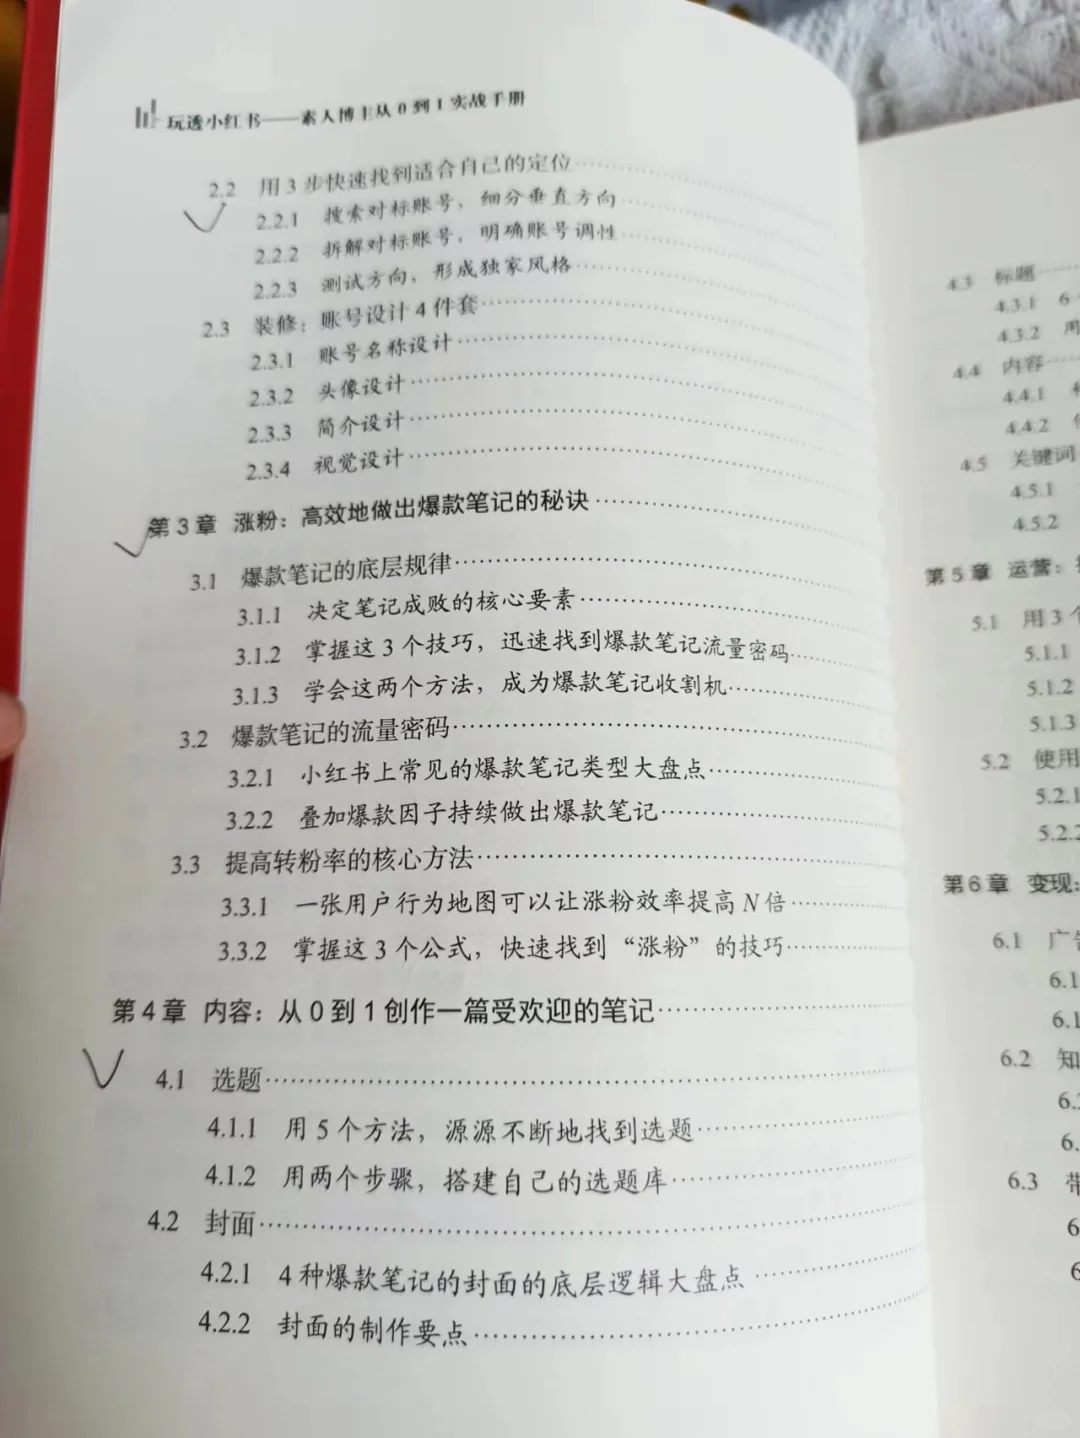 玩透小红书——素人博主从0到1实战手册
2.2 用3步快速找到适合自己的定位
2.2.1 搜索对标账号，细分垂直方向
2.2.2 拆解对标账号，明确账号调性
2.2.3 测试方向，形成独家风格
2.3 装修：账号设计4件套
2.3.1 账号名称设计
2.3.2 头像设计
2.3.3 简介设计
2.3.4 视觉设计
第3章 涨粉：高效地做出爆款笔记的秘诀
3.1 爆款笔记的底层规律
3.1.1 决定笔记成败的核心要素
3.1.2 掌握这3个技巧，迅速找到爆款笔记流量密码
3.1.3 学会这两个方法，成为爆款笔记收割机
3.2 爆款笔记的流量密码
3.2.1 小红书上常见的爆款笔记类型大盘点
3.2.2 叠加爆款因子持续做出爆款笔记
3.3 提高转粉率的核心方法
3.3.1 一张用户行为地图可以让涨粉效率提高N倍
3.3.2 掌握这3个公式，快速找到“涨粉”的技巧
第4章 内容：从0到1创作一篇受欢迎的笔记
4.1 选题
4.1.1 用5个方法，源源不断地找到选题
4.1.2 用两个步骤，搭建自己的选题库
4.2 封面
4.2.1 4种爆款笔记的封面的底层逻辑大盘点
4.2.2 封面的制作要点
4.3 标题
4.3.1 6
4.3.2 用
4.4 内容
4.4.1
4.4.2
4.5 关键词
4.5.1
4.5.2
第5章 运营：
5.1 用3个
5.1.1
5.1.2
5.1.3
5.2 使用
5.2.1
5.2.2
第6章 变现：
6.1 广告
6.1
6.1
6.2 知
6.2
6.
6.3 带
6
6